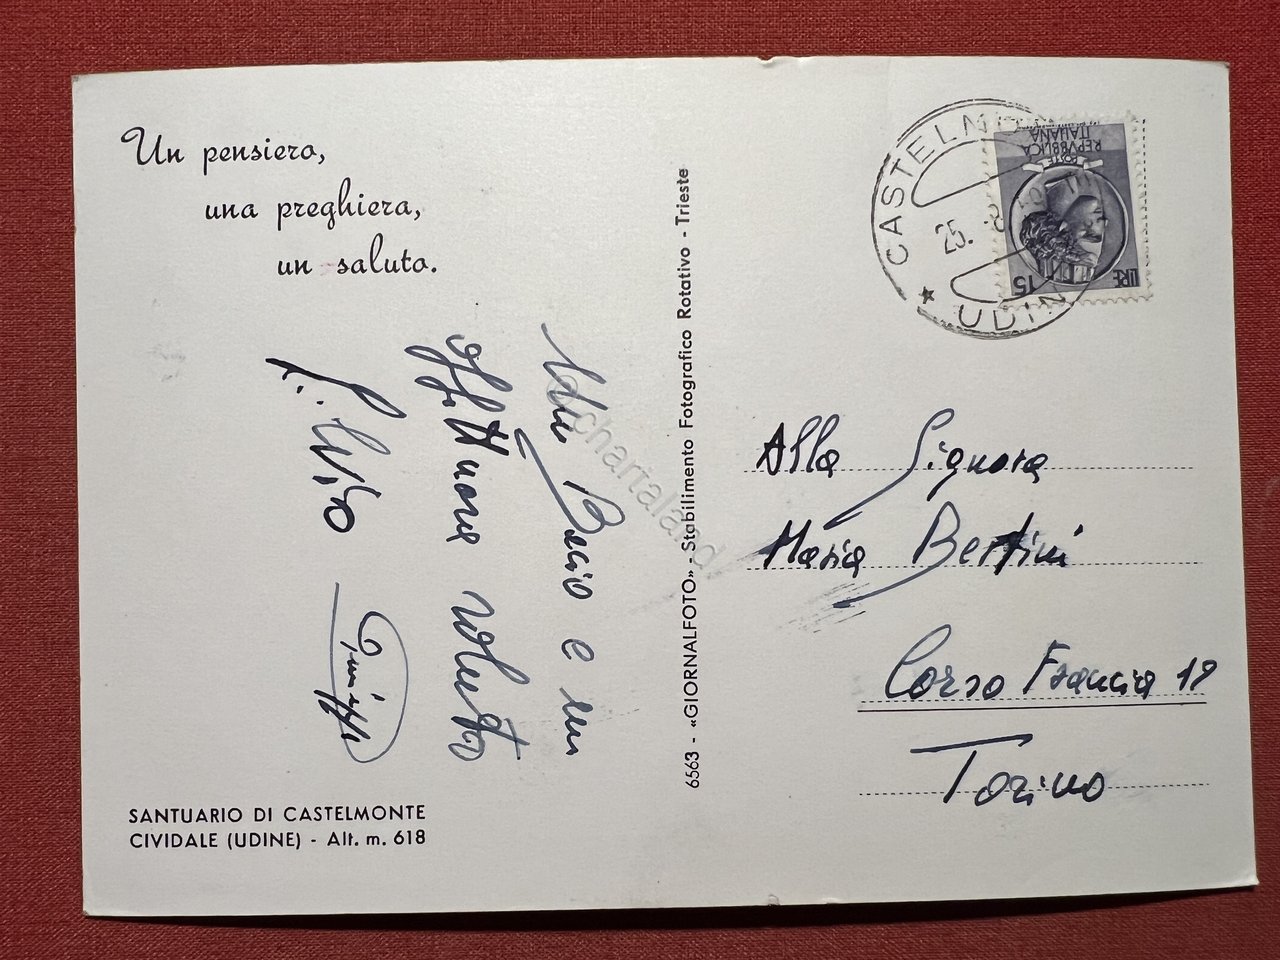 Un pensiero,
una preghiera,
un saluto.
Un Bacio e un
affettuoso saluto
SANTUARIO DI CASTELMONTE
CIVIDALE (UDINE) - Alt. m. 618
6563 - «GIORNALFOTO» - Stabilimento Fotografico Rotativo - Trieste
CASTELM
25.
UDIN
REPVBBLICA
ITALIANA
POSTE
LIRE 15
Alla Signora
Maria Bertini
Corso Francia 19
Torino
© chartaland